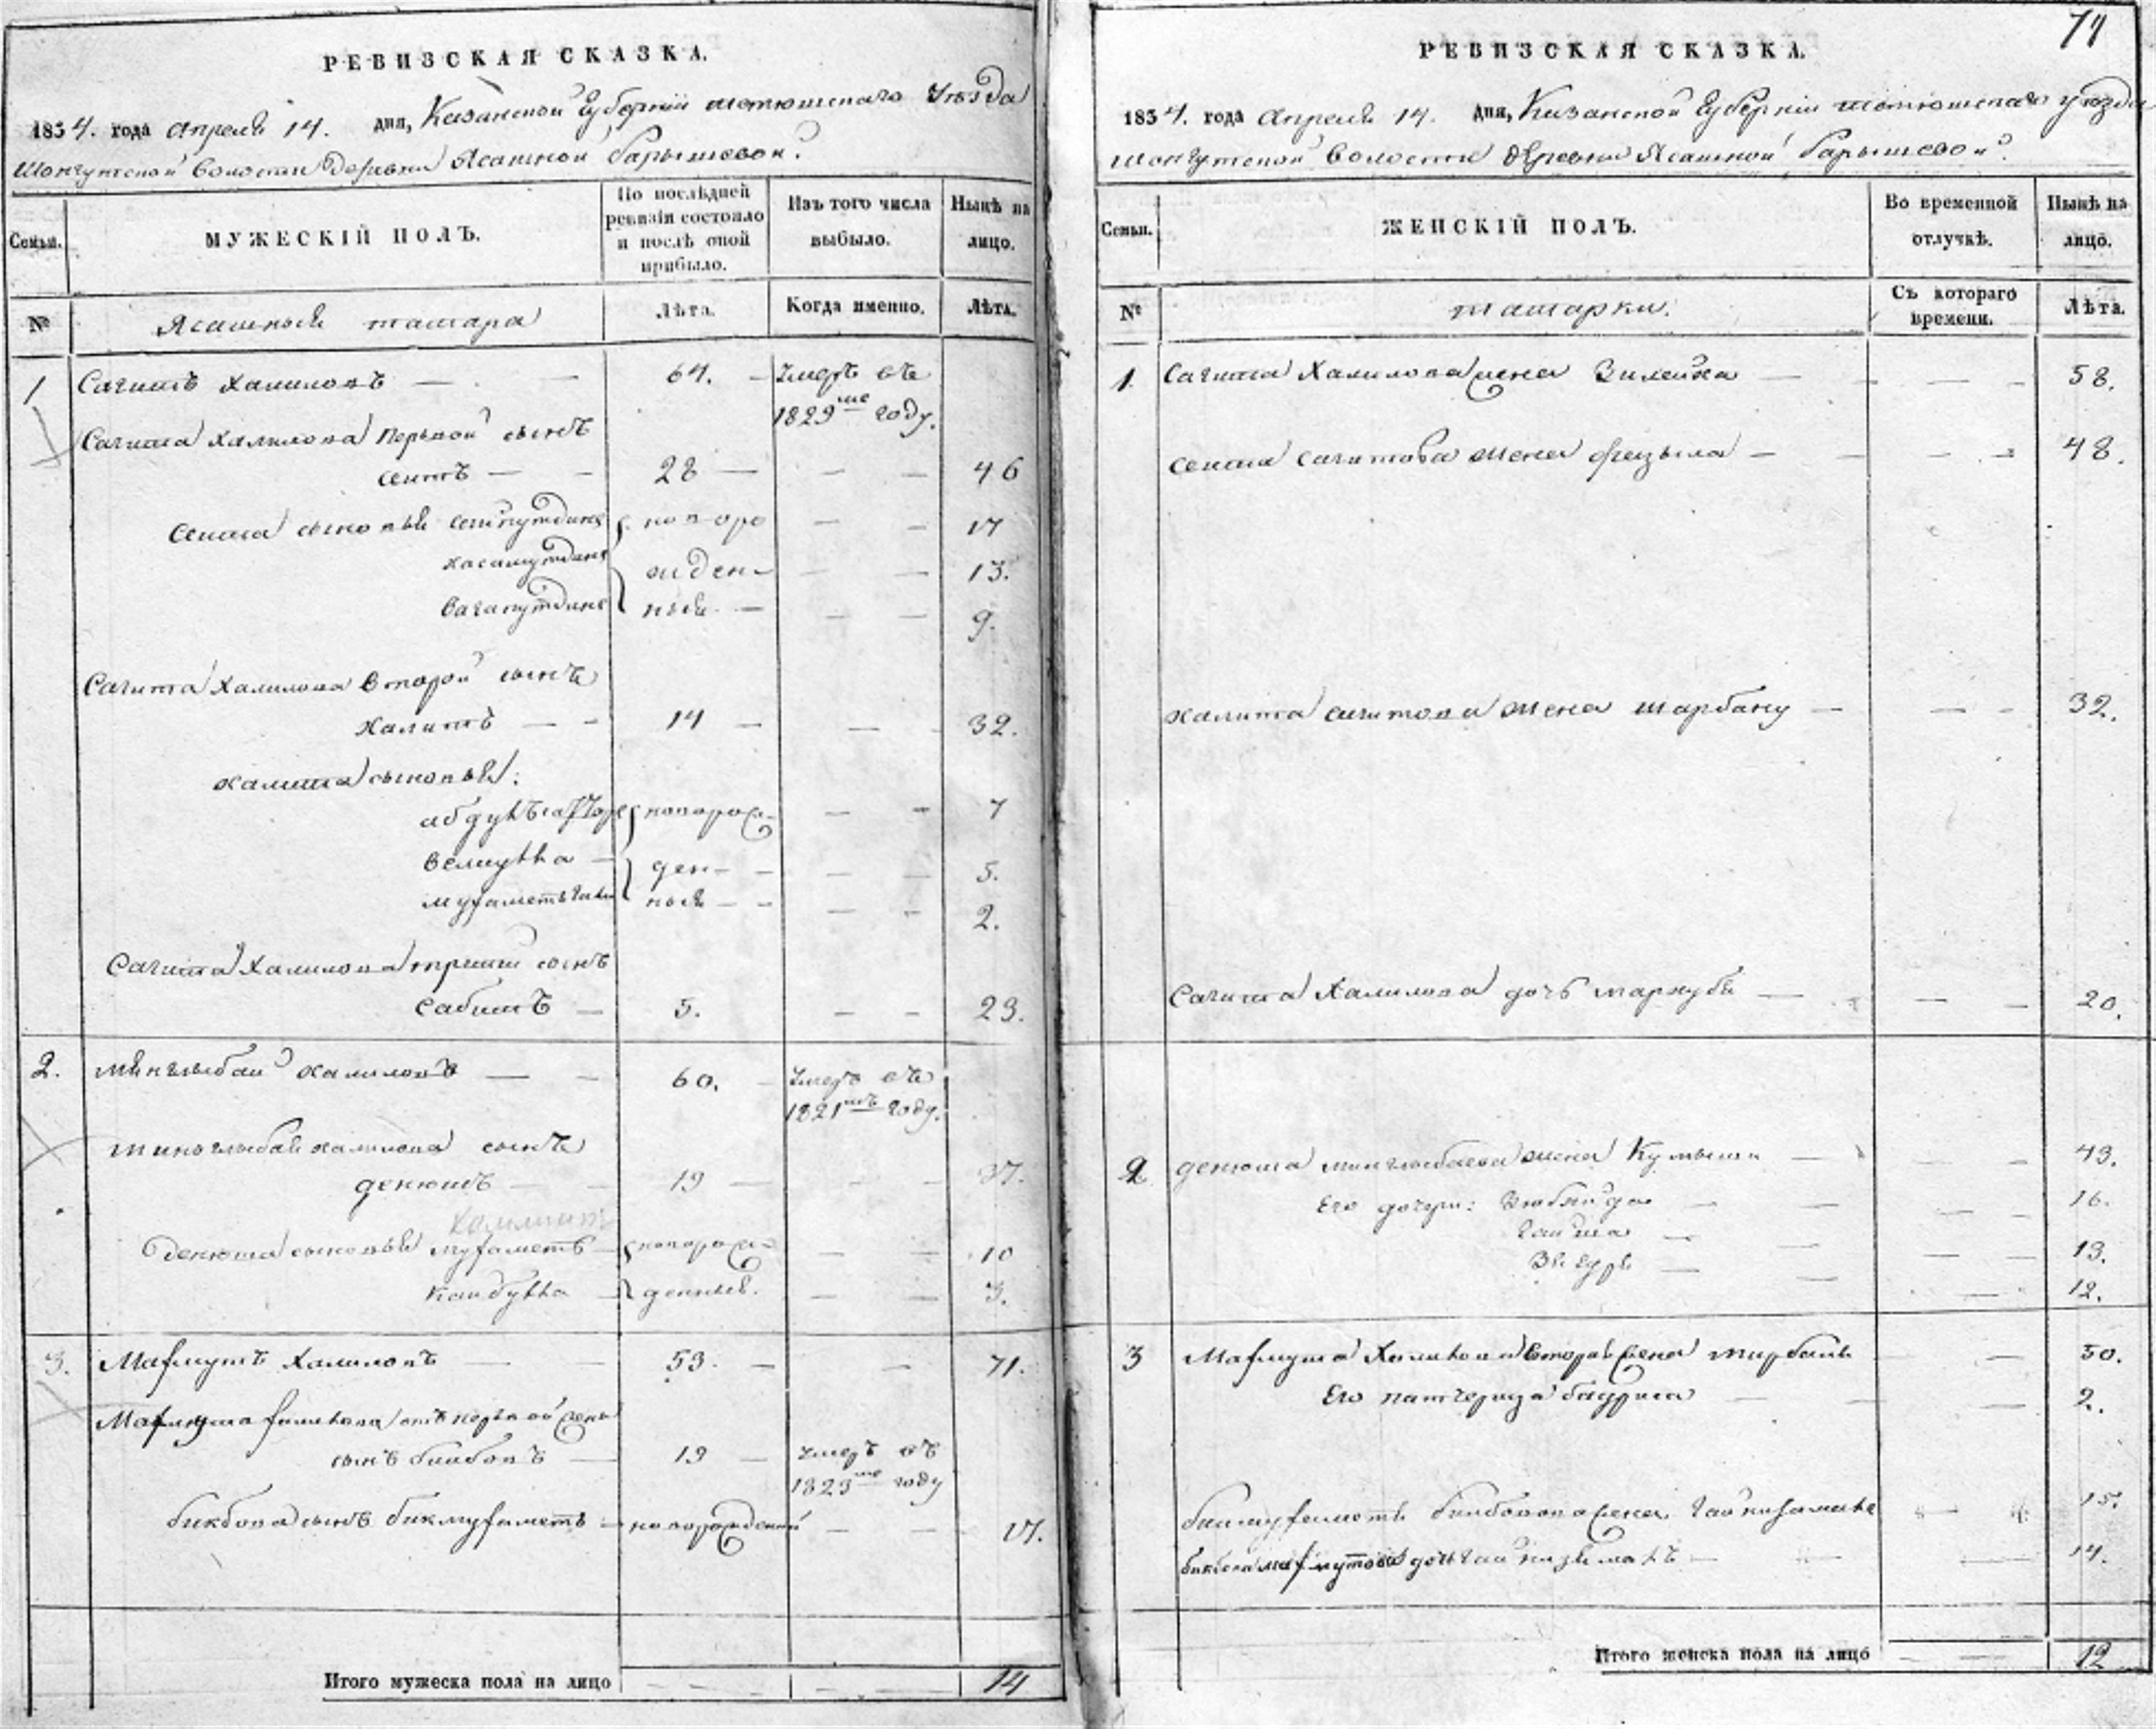 РЕВИЗСКАЯ СКАЗКА.
1834. года Апреля 14. дня, Казанской Губернии тетюшскаго Уезда
Шонгутской волости деревни Ясашной барышевой.
Семьи.
МУЖЕСКІЙ ПОЛЪ.
По послѣдней ревизіи состояло и послѣ оной прибыло.
Изъ того числа выбыло.
Нынѣ на лицо.
№
Ясашныя татара
Лѣта.
Когда именно.
Лѣта.
1 Сагитъ Халиловъ — 64. — Умеръ въ 1829 году.
Сагита Халилова первой сынъ
сеитъ — 28 — — — 46
Сеита сыновья сейпутдинъ новоро — — 17
хасамутдинъ жден — — 13.
вагапутдинъ ныя — — — 9.
Сагита Халилова второй сынъ
Халитъ — 14 — — 32.
халита сыновья:
новорож — — 7
велиулла — ден — — 5.
ныя — — 2.
Сагита Халилова третий сынъ
Сабитъ — 5. — — 23.
2. Халиловъ — 60. — Умеръ въ 1821 году.
халилова сынъ
денюшъ — 19 — — 37.
Халиллит
Денюша сыновья мухаметъ — новорож — — 10
Каибулла — денныя. — — 3.
3. Махмутъ Халиловъ — 53. — — 71.
Махмута халилова отъ первой жены
сынъ бикбовъ — 19 — Умеръ въ 1823 году
бикбова сынъ бикмухаметъ — новорожденный — — 17.
Итого мужеска пола на лицо — — 14
74
РЕВИЗСКАЯ СКАЗКА.
1834. года Апреля 14. дня, Казанской Губернии тетюшскаго уезда
шонгутской волости деревни Ясашной барышевой.
Семьи.
ЖЕНСКІЙ ПОЛЪ.
Во временной отлучкѣ.
Нынѣ на лицо.
№
татарки.
Съ котораго времени.
Лѣта.
1. Сагита Халилова жена Зилейха — — — 58.
Сеита сагитова жена фезыла — — — 48.
халита сагитова жена шарбану — — — 32.
Сагита Халилова дочь — — — 20.
2. денюша жена Кумыши — — — 43.
Его дочери: — — — 16.
Гайша — — — 13.
— — — 12.
3 Махмута Халилова вторая жена мирбань — — 50.
Его патчерица — — 2.
бикмухаметъ бикбовова жена 15.
дочь 14.
Итого женска пола на лицо — — 12